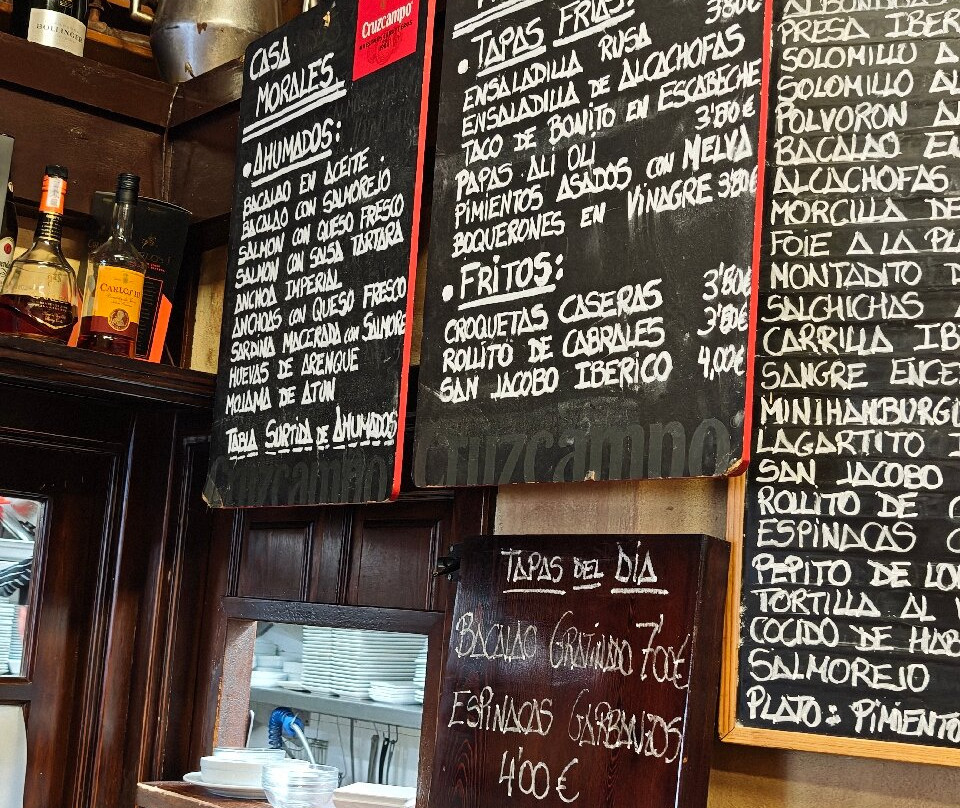 BOLLINGER
CARLOS III
Cruzcampo
CASA
MORALES
• AHUMADOS:
BACALAO EN ACEITE
BACALAO CON SALMOREJO
SALMON CON QUESO FRESCO
SALMON CON SALSA TARTARA
ANCHOA IMPERIAL
ANCHOAS CON QUESO FRESCO
SARDINA MACERADA CON SALMORE
HUEVAS DE ARENGUE
MOJAMA DE ATUN
TABLA SURTIDA DE AHUMADOS
Cruzcampo
3'80€
• TAPAS FRIAS:
ENSALADILLA RUSA
ENSALADILLA DE ALCACHOFAS
TACO DE BONITO EN ESCABECHE
3'80€
PAPAS ALI OLI
PIMIENTOS ASADOS CON MELVA
BOQUERONES EN VINAGRE 3'80€
• FRITOS:
CROQUETAS CASERAS 3'80€
ROLLITO DE CABRALES 3'80€
SAN JACOBO IBERICO 4,00€
Cruzcampo
TAPAS DEL DÍA
BACALAO GRATINADO 7'00€
ESPINACAS GARBANZOS
4'00€
ALBONDIGAS
PRESA IBER
SOLOMILLO A
SOLOMILLO AL
POLVORON A
BACALAO EN
ALCACHOFAS
MORCILLA DE
FOIE A LA PL
MONTADITO D
SALCHICHAS
CARRILLA IB
SANGRE ENCE
MINIHAMBURGU
LAGARTITO I
SAN JACOBO
ROLLITO DE C
ESPINACAS C
PEPITO DE LO
TORTILLA AL
COCIDO DE HAB
SALMOREJO
PLATO: PIMIENTO